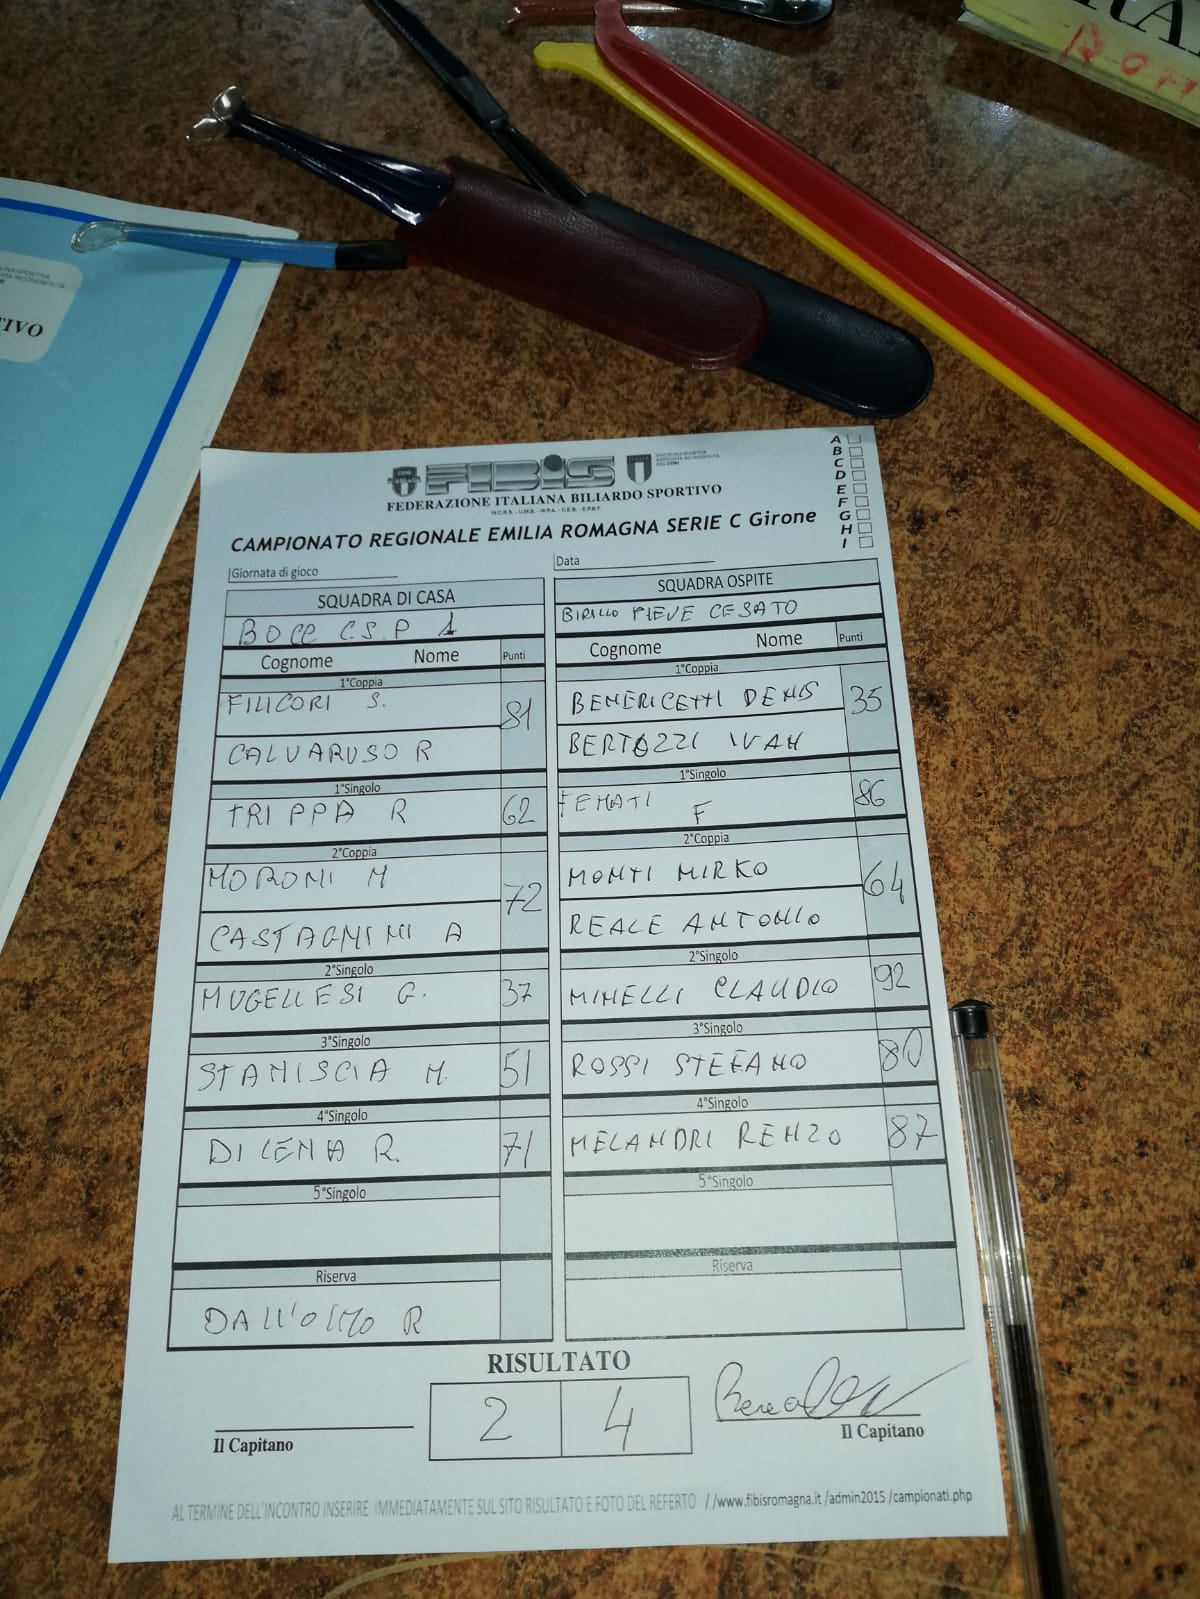 TIVO
RA
ROM
FIBIS
DISCIPLINA SPORTIVA
ASSOCIATA RICONOSCIUTA
DAL CONI
FEDERAZIONE ITALIANA BILIARDO SPORTIVO
W.C.B.S. - U.M.B. - W.P.A. - C.E.B. - E.P.B.F.
CAMPIONATO REGIONALE EMILIA ROMAGNA SERIE C Girone
A
B
C
D
E
F
G
H
I
Giornata di gioco
Data
SQUADRA DI CASA
BOCC C.S.P 1
Cognome Nome Punti
1°Coppia
FILICORI S.
81
CALVARUSO R
1°Singolo
TRIPPA R 62
2°Coppia
MORONI M
72
CASTAGNINI A
2°Singolo
MUGELLESI G. 37
3°Singolo
STANISCIA M. 51
4°Singolo
DI LENA R. 71
5°Singolo
Riserva
DALL'OLMO R
SQUADRA OSPITE
BIRILLO PIEVE CESATO
Cognome Nome Punti
1°Coppia
BENERICETTI DENIS
35
BERTOZZI IVAN
1°Singolo
FENATI F 86
2°Coppia
MONTI MIRKO
64
REALE ANTONIO
2°Singolo
MINELLI CLAUDIO 92
3°Singolo
ROSSI STEFANO 80
4°Singolo
MELANDRI RENZO 87
5°Singolo
Riserva
RISULTATO
2 4
Il Capitano
Il Capitano
AL TERMINE DELL'INCONTRO INSERIRE IMMEDIATAMENTE SUL SITO RISULTATO E FOTO DEL REFERTO //www.fibisromagna.it /admin2015 /campionati.php